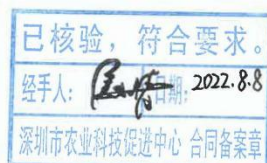 已核验，符合要求。
经手人： 日期：2022.8.8
深圳市农业科技促进中心 合同备案章